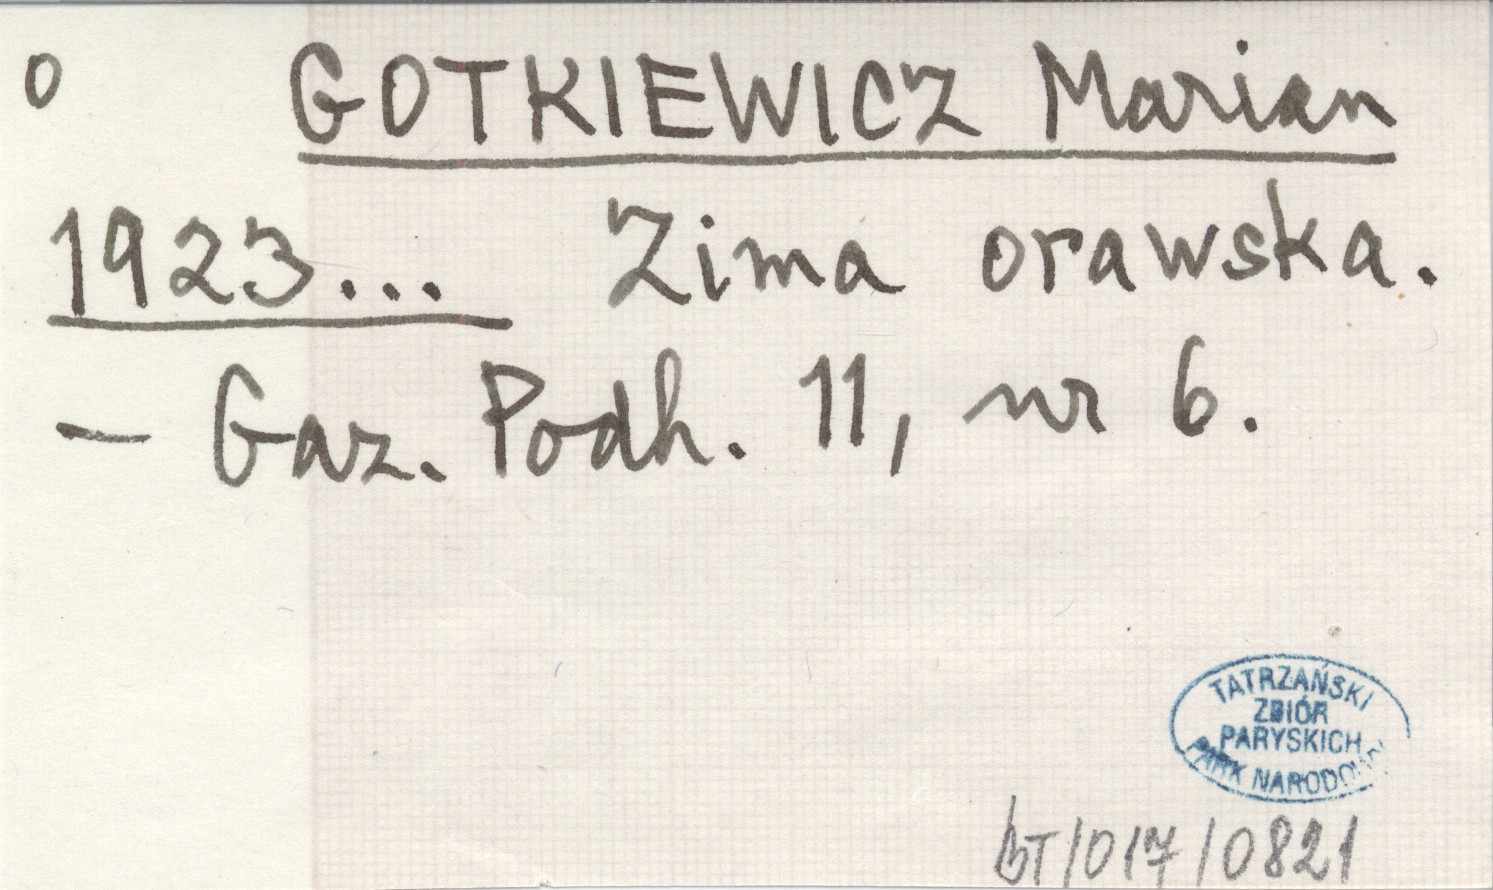 O GOTKIEWICZ Marian
1923... Zima orawska.
— Gaz. Podh. 11, nr 6.
TATRZAŃSKI
ZBIÓR
PARYSKICH
PARK NARODOWY
BT/017/0821